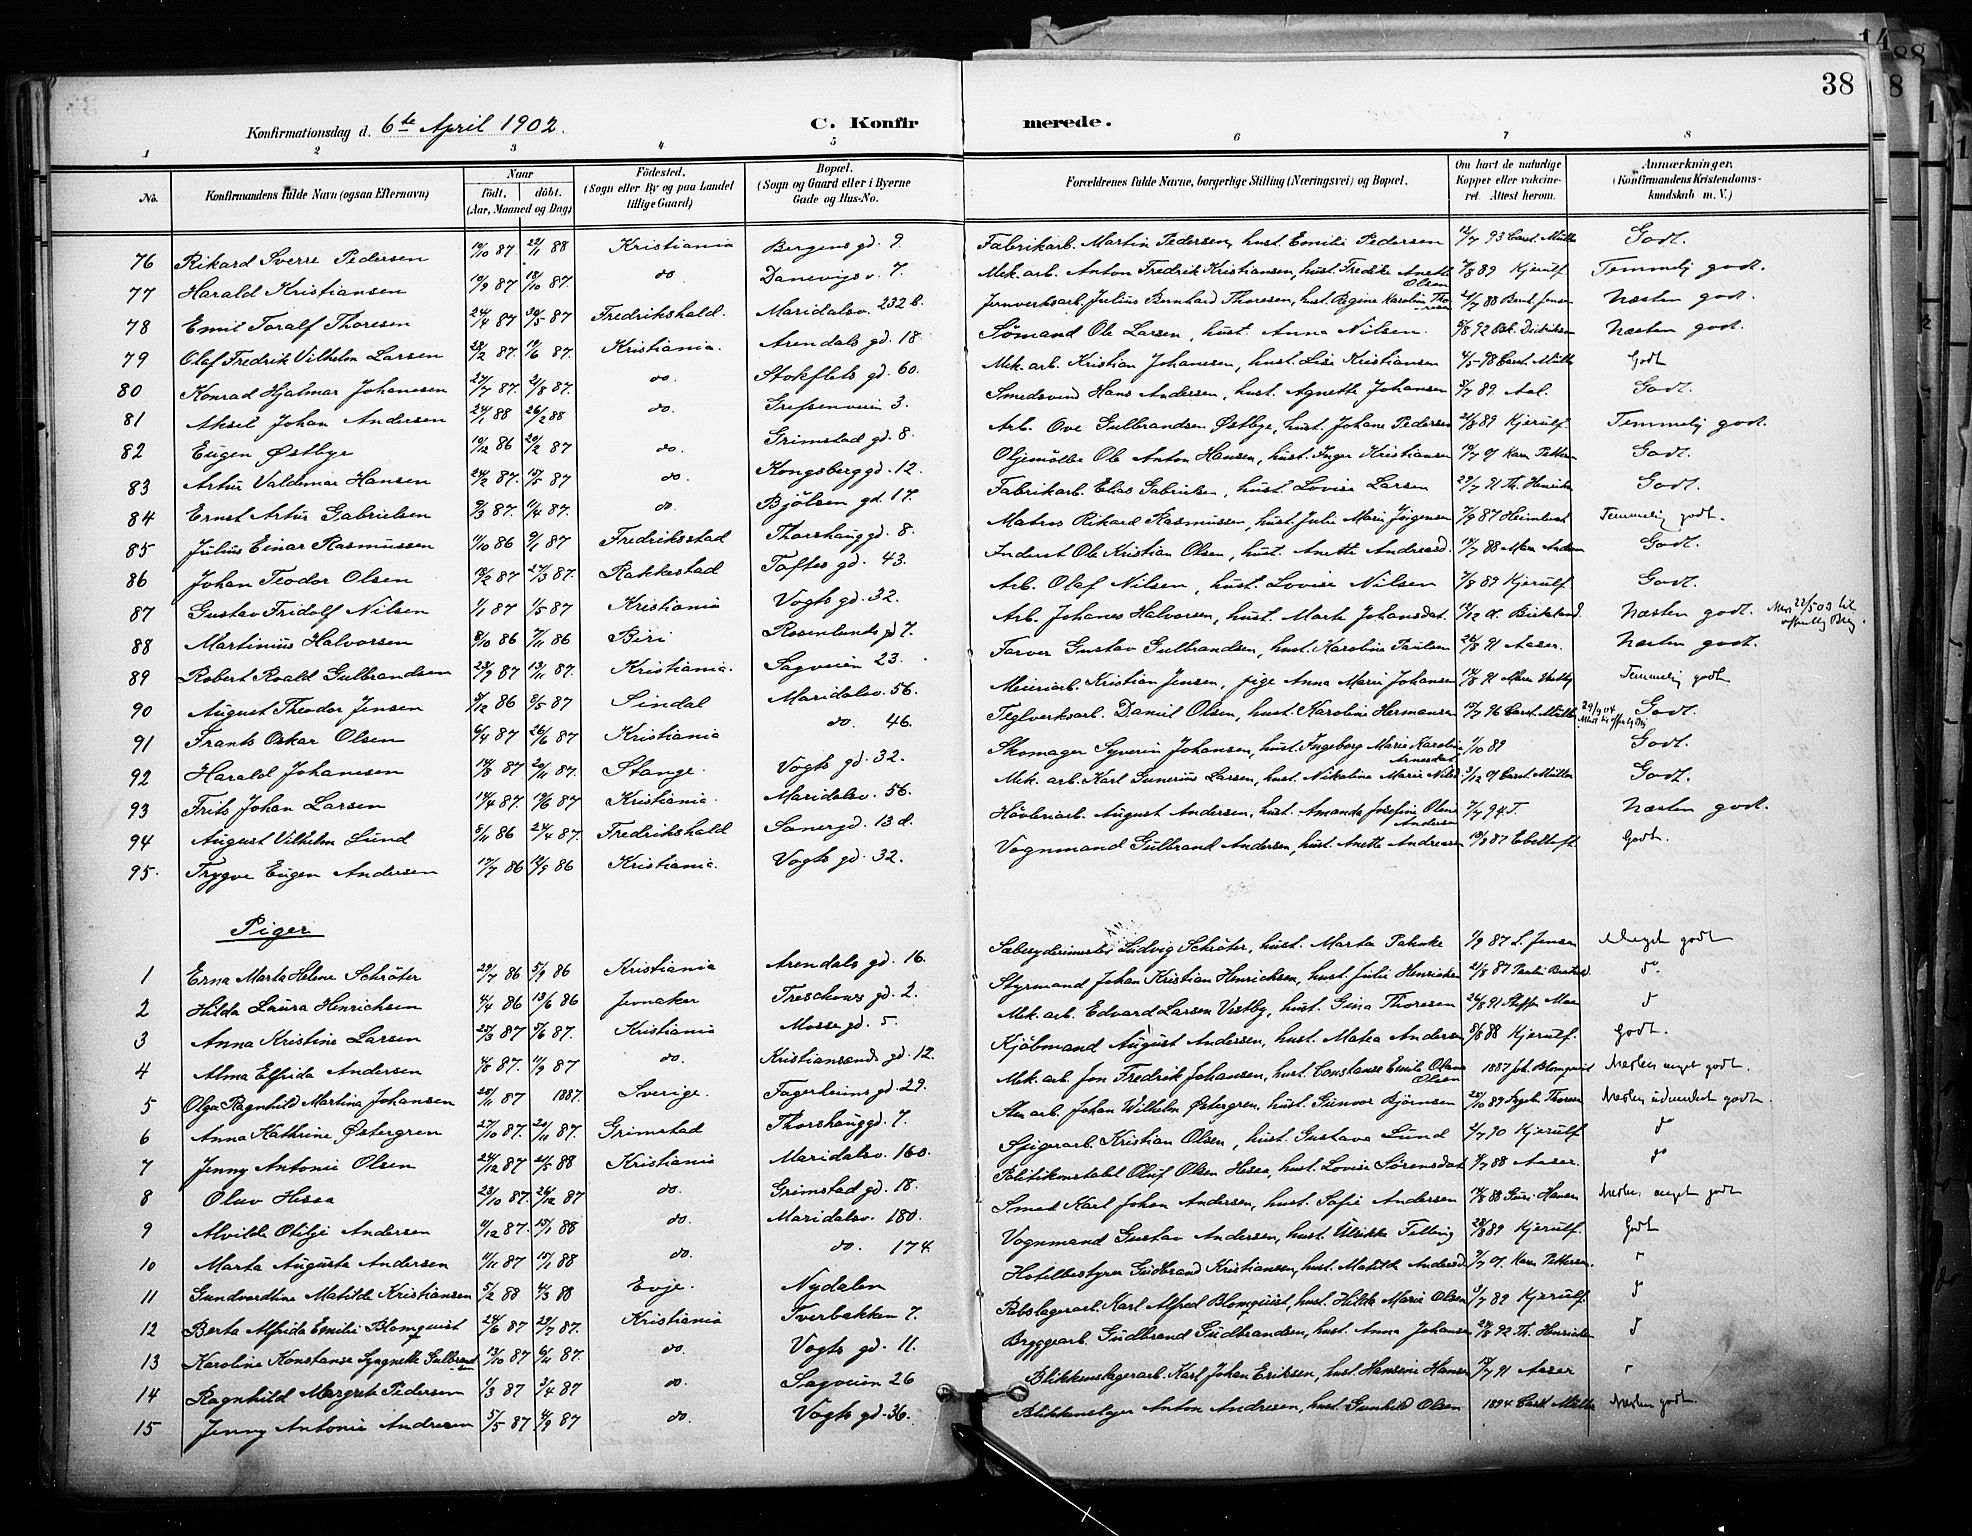 38
Konfirmationsdag d. 6te April 1902. C. Konfirmerede.
1 2 3 4 5 6 7 8
No. Konfirmandens fulde Navn (ogsaa Efternavn) Naar födt. döbt. (Aar, Maaned og Dag) Födested. (Sogn eller By og paa Landet tillige Gaard) Bopæl. (Sogn og Gaard eller i Byerne Gade og Hus-No. Forældrenes fulde Navne, borgerlige Stilling (Næringsvei) og Bopæl. Om havt de naturlige Kopper eller vakcineret. Attest herom. Anmærkninger. (Konfirmandens Kristendomskundskab m. V.)
76 Rikard Sverre Pedersen 19/10 87 22/1 88 Kristiania Bergens gd. 9. Fabrikarb. Martin Pedersen, hust. Emilie Pedersen 12/7 93 Godt.
77 Harald Kristiansen 19/9 87 13/10 87. do Danevigsv. 7. Mek. arb. Anton Fredrik Kristiansen, hust. Fredike Anette Olsen 7/8 89 Kjerulf. Temmelig godt.
78 Emil Toralf Thoresen 24/4 87 30/5 87 Fredrikshald. Maridalsv. 232 b. Jernverksarb. Julius Bernhard Thoresen, hust. Regine Karoline Thoresen 2/7 88 Bernt Jensen Næsten godt.
79 Olaf Fredrik Vilhelm Larsen 28/2 87. 19/6 87. Kristiania. Arendals gd. 18. Sømand Ole Larsen, hust. Anna Nilsen. 8/8 92 Næsten godt.
80 Konrad Hjalmar Johanesen 27/7 87. 21/8 87. do. Stokflets gd. 60. Mek. arb. Kristian Johanesen, hust. Lise Kristiansen 4/5-98 Godt
81 Aksel Johan Andersen 24/1 88 26/2 88 do. Grefsenveien 3. Smedsvend Hans Andersen, hust. Agnette Johansen 8/7 89. Aal. Godt.
82 Eugen Østbye 19/12 86 20/2 87 do. Grimstad gd. 8. Arb. Ove Gulbrandsen Østbye, hust. Johane Pedersen 21/8 89 Kjerulf. Temmelig godt.
83 Artur Valdemar Hansen 24/2 87. 15/5 87 do. Kongsberg gd. 12. Oljemøller Ole Anton Hansen, hust. Inger Kristiansen 19/7 01 Karen Pettersen Godt.
84 Ernst Artur Gabrielsen 9/3 87. 11/4 87. do. Bjølsen gd. 17. Fabrikarb. Elias Gabrielsen, hust. Lovise Larsen 27/7 91 Th. Henriksen Godt.
85 Julius Einar Rasmussen 11/10 86 9/1 87 Fredriksstad Thorshauggd. 8. Matros Rikard Rasmussen, hust. Julie Marie Jørgensen 7/9 87 Temmelig godt.
86 Johan Teodor Olsen 19/2 87 27/3 87. Rakkestad Toftes gd. 43. Inderst Ole Kristian Olsen, hust. Anette Andreasd. 19/7 88 Godt.
87 Gustav Fridolf Nilsen 1/1 87 1/5 87 Kristiania Vogts gd. 32. Arb. Olaf Nilsen, hust. Lovise Nilsen 7/8 89 Kjerulf. Godt.
88 Martinius Halvorsen 8/10 86 7/11 86 Biri Rosenlunds gd 7. Arb. Johanes Halvorsen, hust. Marte Johansdat. Næsten godt.
89 Robert Roald Gulbrandsen 23/9 87 13/11 87. Kristiania. Sagveien 23. Farver Gustav Gulbrandsen, hust. Karoline Paulsen 26/8 91 Aaser. Næsten godt.
90 August Theodor Jensen 8/12 86 8/5 87 Sindal Maridalsv. 56. Meieriarb. Kristian Jensen, pige Anna Marie Johansen Temmelig godt
91 Frants Oskar Olsen 6/4 87 26/6 87 Kristiania do. 46. Teglverksarb. Daniel Olsen, hust. Karoline Hermansen 17/7 96 29/9 04 Godt.
92 Harald Johanesen 14/8 87 20/11 87. Stange. Vogts gd. 32. Skomager Syverin Johansen, hust. Ingeborg Marie Karoline Arnesdat 1/10 89 Godt.
93 Frits Johan Larsen 14/4 87. 19/6 87 Kristiania. Maridalsv. 56. Mek. arb. Karl Gunerius Larsen, hust. Nikoline Marie Nilsd 3/12 01 Godt.
94 August Vilhelm Lund 5/11 86 24/4 87. Fredrikshald Sanergd. 13 d. Høvleriarb. August Andersen, hust. Amanda Josefine Olava Andersen 7/7 94 T. Næsten godt.
95. Trygve Eugen Andersen 17/7 86 12/9 86 Kristiania. Vogts gd. 32. Vognmand Gulbrand Andersen, hust. Anette Andreasen 19/8 87 Ebeltoft Godt.
Piger
1 Erna Marta Helene Schrøter 29/7 86 5/9 86 Kristiania Arendals gd. 16. Sæbesyderimester Ludvig Schrøter, hust. Marta Pahnke 1/9 87 L. Jensen Meget godt
2 Hilda Laura Henrichsen 4/4 86 13/6 86 Jevnaker Treschows gd. 2. Styrmand Johan Kristian Henrichsen, hust. Julie Henriksen 21/8 87 do.
3 Anna Kristine Larsen 25/3 87 5/6 87. Kristiania Mosse gd. 5. Mek. arb. Edvard Larsen Vestby, hust. Gina Thoresen 26/8 91 do
4 Alma Elfrida Andersen 4/6 87. 11/9 87 do. Kristiansands gd. 12. Kjøbmand August Andersen, hust. Matea Andersen 8/6 88 Kjerulf. Godt.
5 Olga Ragnhild Martina Johansen 25/11 87 1887. Sverige. Fagerheims gd. 29. Mek. arb. Jon Fredrik Johansen, hust. Constanse Emile Olava Olsen 1887 Joh. Blomquist Næsten meget godt.
6 Anna Kathrine Østergren 27/10 87. 20/11 87. Grimstad Thorshauggd. 7. Sten arb. Johan Wilhelm Østergren, hust. Gunvor Bjørnsen 20/10 89 Næsten udmerket godt.
7 Jenny Antonie Olsen 24/12 87 21/5 88 Kristiania Maridalsv. 160. Spigerarb. Kristian Olsen, hust. Gustava Lund 2/7 90 Kjerulf do
8 Oluv Hessa 23/10 87. 26/12 87 do. Grimstad gd. 18. Politikonstabel Oluf Olsen Hessa, hust. Lovise Sørensdat 4/7 88 Aaser. do
9 Alvilde Otilje Andersen 11/12 87. 15/1 88 do. Maridalsv. 180. Smed Karl Johan Andersen, hust. Sofie Andersen 14/8 88 Guri Hansen Næsten meget godt
10 Marta Augusta Andersen 11/11 87 15/1 88 do. do. 174. Vognmand Gustav Andersen, hust. Ulrikke Felling 28/8 89 Kjerulf. Godt
11 Gundvordtine Matilde Kristiansen 5/2 88 4/3 88 Evje. Nydalen Hotelbestyrer Gudbrand Kristiansen, hust. Matilde Andersd 3/7 01. Karen Pettersen. "
12 Berta Alfrida Emilie Blomquist 24/6 87 29/7 87. Kristiania Tverbakken 7. Rebslagerarb. Karl Alfred Blomquist, hust. Hilda Marie Olsen 3/7 89 Kjerulf. do
13 Karoline Konstanse Sgagnette Gulbrandsen 13/10 87 6/11 87. do. Vogts gd. 11. Bryggearb. Gudbrand Gudbrandsen, hust. Anna Johansen 24/8 92 Th. Henriksen do
14 Ragnhild Margrete Pedersen 1/3 87 3/4 87 do. Sagveien 26 Blikkenslagerarb. Karl Johan Eriksen, hust. Hansine Hansen 18/7 91 Aaser "
15 Jenny Antonie Andresen 5/5 87 4/9 87 do Vogts gd. 36. Blikkenslager Anton Andresen, hust. Gunhild Olsen 1894 Næsten godt.